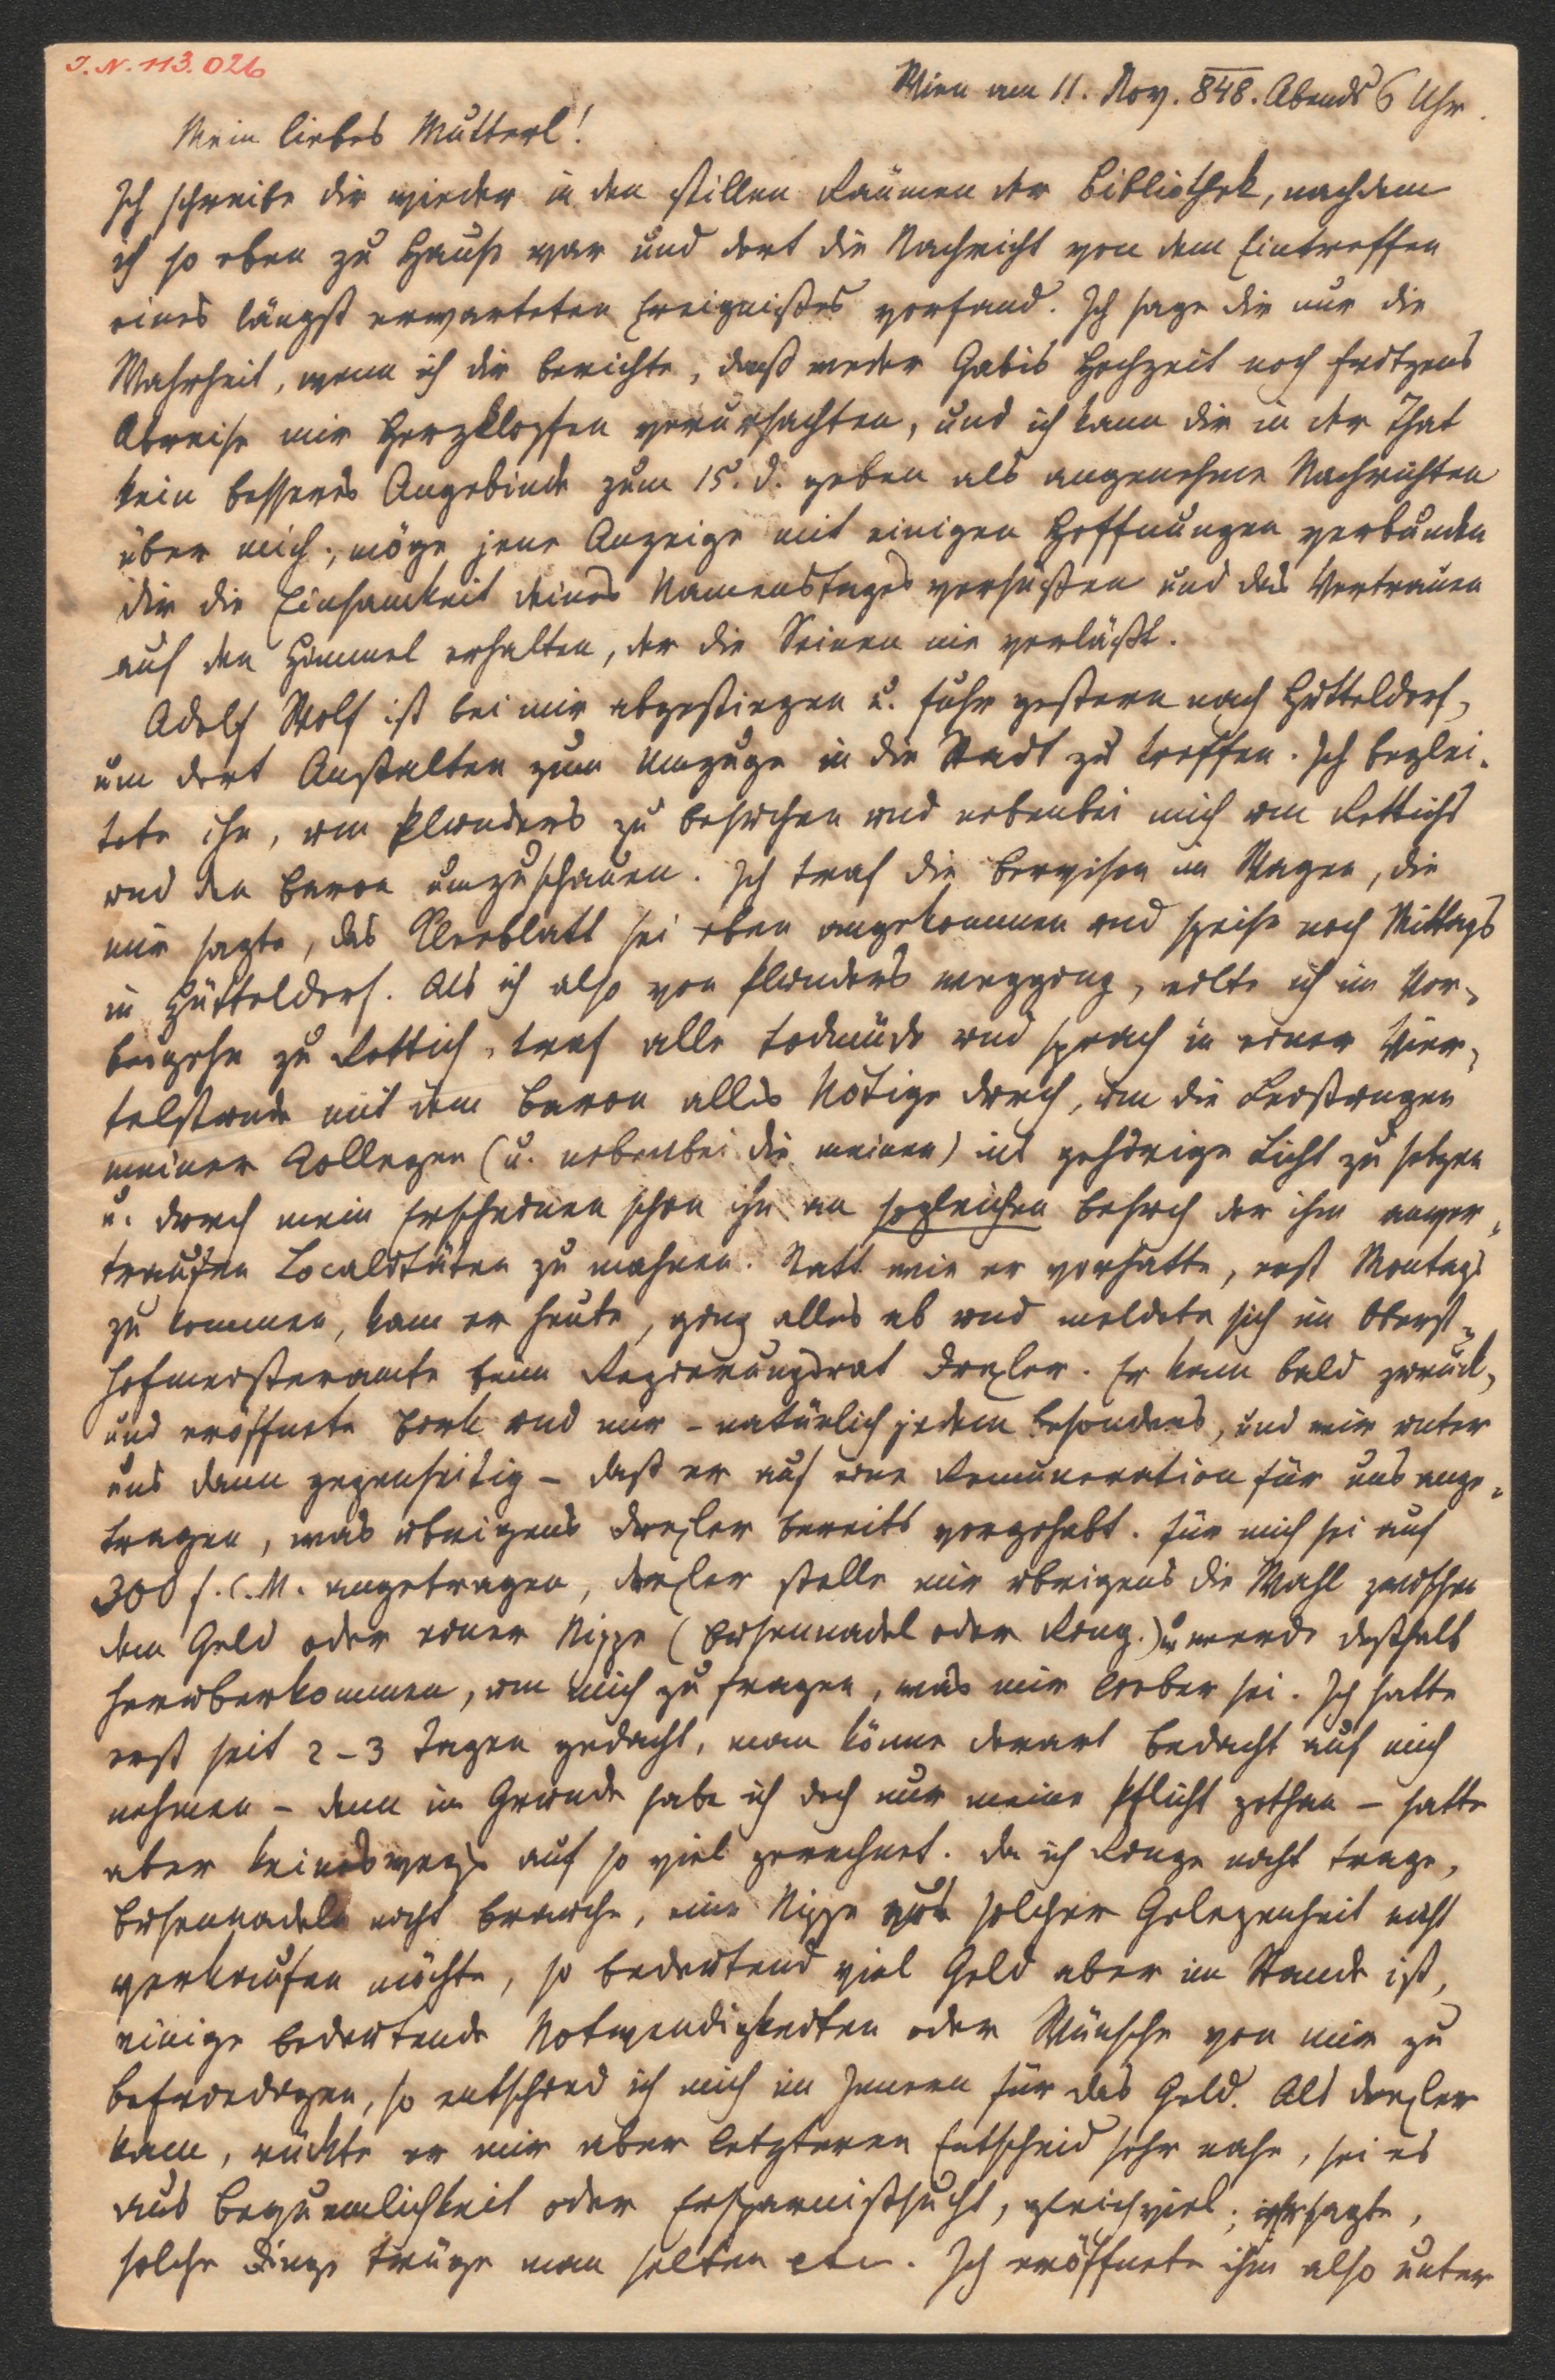 I. N. 113.026
Wien am 11. Nov. 848. Abends 6 Uhr.
Mein liebes Mutterl!
Ich schreibe dir wieder in den stillen Räumen der Bibliothek, nachdem
ich so eben zu Hause war und dort die Nachricht von dem Eintreffen
eines längst erwarteten Ereignißes vorfand. Ich sage dir nur die
Wahrheit, wenn ich dir berichte, daß weder Gabis Hochzeit noch
Abreise mir Herzklopfen verursachten, und ich kann dir in der That
kein besseres Angebinde zum 15. d. geben als angenehme Nachrichten
über mich; möge jene Anzeige mit einigen Hoffnungen verbunden
dir die Einsamkeit deines Namenstages versüßen und das Vertrauen
auf den Himmel erhalten, der die Seinen nie verläßt.
Adolf Wolf ist bei mir abgestiegen u. fuhr gestern nach Hütteldorf,
um dort Anstalten zum Umzuge in die Stadt zu treffen. Ich beglei-
tete ihn, um Flanders zu besuchen und nebenbei mich um Rettichs
und den Baron umzuschauen. Ich traf die im Wagen, die
mir sagte, das Kleeblatt sei eben angekommen und speise noch Mittags
in Hütteldorf. Als ich also von Flanders wegging, eilte ich im Vor-
beigehn zu Rettich, traf alle todmüde und sprach in einer Vier-
telstunde mit dem Baron alles Nötige durch, um die Leistungen
meiner Collegen (u. nebenbei die meinen) ins gehörige Licht zu setzen
u. durch mein Erscheinen schon ihn an sogleichen Besuch der ihm anver-
trauten Localitäten zu mahnen. Statt wie er vorhatte, erst Montags
zu kommen, kam er heute, ging alles ab und meldete sich im Oberst-
hofmeisteramte beim Regierungsrat Drexler. Er kam bald zurück,
und eröffnete Bork und mir – natürlich jedem besonders, und wir unter
uns dann gegenseitig – daß er auf eine Remuneration für uns ange-
tragen, was übrigens Drexler bereits vorgehabt. Für mich sei auf
300 f. C.M. angetragen, Drexler stelle mir übrigens die Wahl zwischen
dem Geld oder einer Nippe (Busennadel oder Ring.) u werde deßhalb
herüberkommen, um mich zu fragen, was mir lieber sei. Ich hatte
erst seit 2–3 Tagen gedacht, man könne derart Bedacht auf mich
nehmen – denn im Grunde habe ich doch nur meine Pflicht gethan – hatte
aber keineswegs auf so viel gerechnet. Da ich Ringe nicht trage,
Busennadeln nicht brauche, eine Nippe aus solcher Gelegenheit nicht
verkaufen möchte, so bedeutend viel Geld aber im Stande ist,
einige bedeutende Notwendigkeiten oder Wünsche von mir zu
befriedigen, so entschied ich mich im Innern für das Geld. Als Drexler
kam, rückte er mir aber letzteren Entscheid sehr nahe, sei es
aus Bequemlichkeit oder Ersparnißsucht, gleichviel; er sagte,
solche Dinge trüge man selten etc. Ich eröffnete ihm also unter